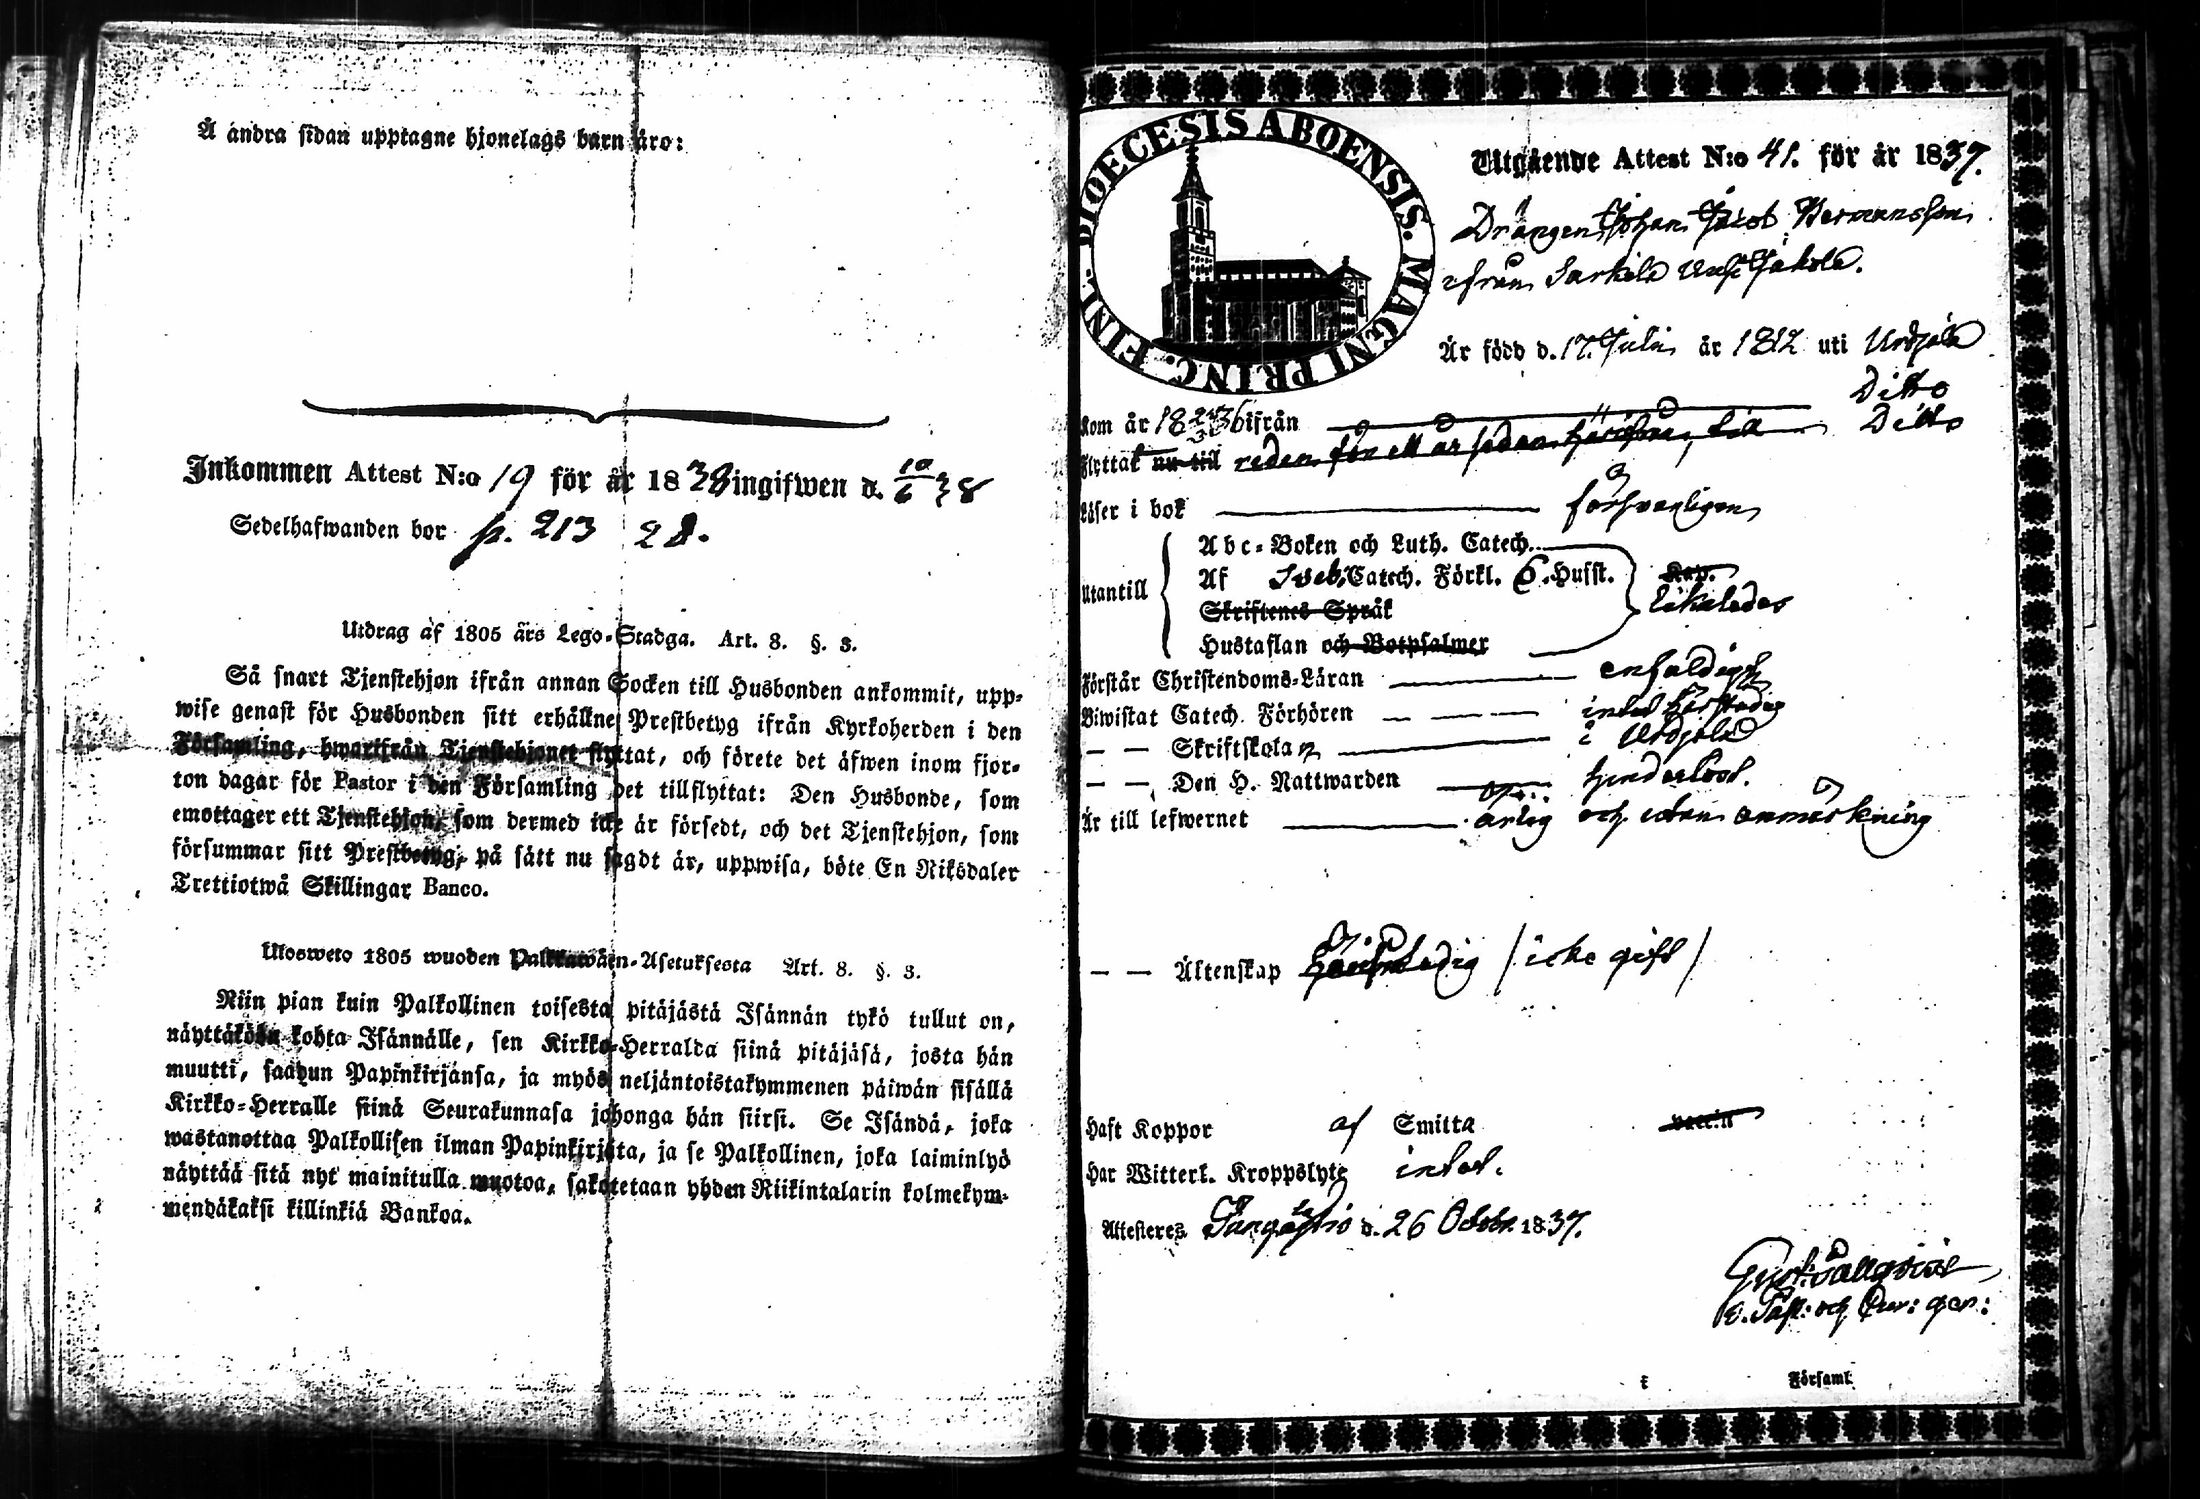 Å andra sidan upptagne hjonelags barn äro:
Inkommen Attest N:o 19 för år 1838 ingifwen d. 10/6 38
Sedelhafwanden bor p. 213 28.
Utdrag af 1805 års Lego-Stadga. Art. 8. §. 3.
Så snart Tjenstehjon ifrån annan Socken till Husbonden ankommit, upp-
wise genast för Husbonden sitt erhållne Prestbetyg ifrån Kyrkoherden i den
Församling, hwarifrån Tjenstehjonet flyttat, och förete det äfwen inom fjor-
ton dagar för Pastor i den Församling det tillflyttat: Den Husbonde, som
emottager ett Tjenstehjon, som dermed icke är försedt, och det Tjenstehjon, som
försummar sitt Prestbetyg, på sätt nu sagdt är, uppwisa, böte En Riksdaler
Trettiotwå Skillingar Banco.
Ulosweto 1805 wuoden Palkkawäen-Asetuksesta Art. 8. §. 3.
Niin pian kuin Palkollinen toisesta pitäjästä Isännän tykö tullut on,
näyttäköön kohta Isännälle, sen Kirkko-Herralda siinä pitäjäsä, josta hän
muutti, saadun Papinkirjansa, ja myös neljäntoistakymmenen päiwän sisällä
Kirkko-Herralle siinä Seurakunnasa johonga hän siirsi. Se Isändä, joka
wastanottaa Palkollisen ilman Papinkirjata, ja se Palkollinen, joka laiminlyö
näyttää sitä nyt mainitulla muotoa, sakotetaan yhden Riikintalarin kolmekym-
mendäkaksi killinkiä Bankoa.
DIOECESIS ABOENSIS. MAGNI PRINC. FINL.
Utgående Attest N:o 41. för år 1837.
Drängen Johan Jacob Hermansson
ifrån Sarkila Jakola.
Är född d. 17. Julii år 1812 uti Urdjala
Ditto
Kom år 1836 ifrån
Flyttat nu till reden för ett år sedan härifrån, till Ditto
Läser i bok försvarligen
Utantill
Abc-Boken och Luth. Catech.
Af Sveb. Catech. Förkl. 6. Husst. Kap.
Skriftenes Språk likaledes
Hustaflan och Botpsalmer
Förstår Christendoms-Läran enfaldigt
Biwistat Catech. Förhören
— — Skriftskolan i Urdjala
— — Den H. Nattwarden hinderlöst.
Är till lefwernet ärlig och utan anmärkning
— — Äktenskap ledig / icke gift /
Haft Koppor af Smitta vaccin
Har Witterl. Kroppslyte intet.
Attesteres Tungelstio d. 26 Octobr. 1837.
E. Past: och
Församl.